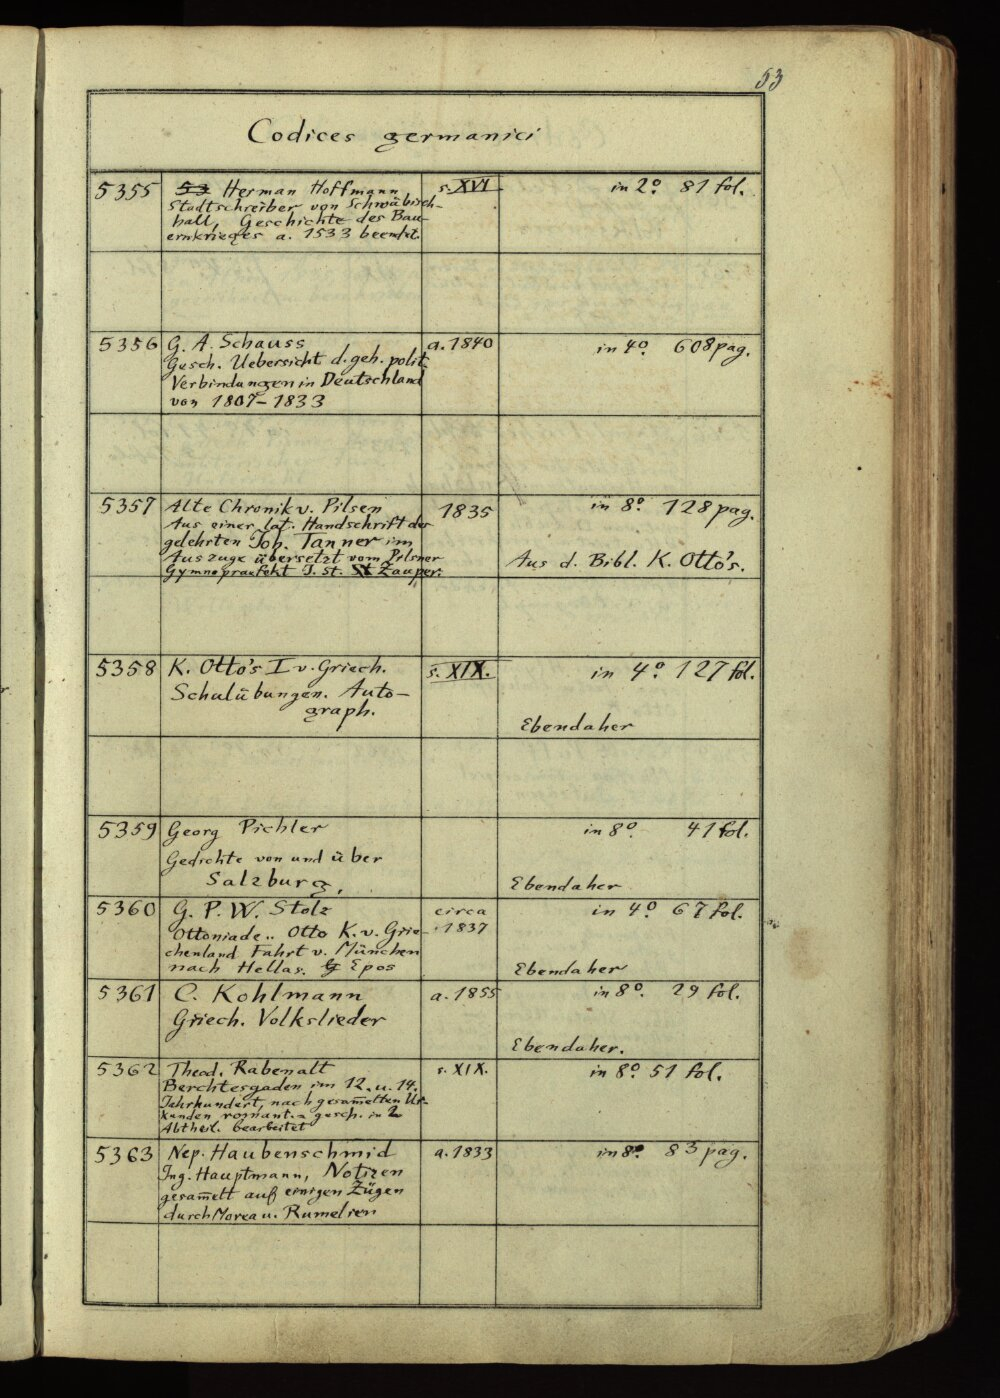 53
Codices germanici
5355 Herman Hoffmann s. XVI in 2º. 81 fol.
Stadtschreiber von Schwäbisch-
hall, Geschichte des Bau-
ernkrieges a. 1533 beendet.
5356 G. A. Schauss a. 1840 in 4º. 608 pag.
Gesch. Uebersicht d. geh. polit.
Verbindungen in Deutschland
von 1807-1833
5357 Alte Chronik v. Pilsen 1835 in 8º. 128 pag.
Aus einer lat. Handschrift des
gelehrten Joh. Tanner im
Auszuge übersetzt vom Pilsner Aus d. Bibl. K. Otto's.
Gymnspraefekt J. St. Zauper.
5358 K. Otto's I v. Griech. s. XIX. in 4º. 127 fol.
Schulübungen. Auto-
graph.
Ebendaher
5359 Georg Pichler in 8º. 41 fol.
Gedichte von und über
Salzburg. Ebendaher
5360 G. P. W. Stolz circa in 4º. 67 fol.
Ottoniade.. Otto K. v. Grie- 1837
chenland Fahrt v. München
nach Hellas. Epos Ebendaher
5361 C. Kohlmann a. 1855 in 8º. 29 fol.
Griech. Volkslieder
Ebendaher.
5362 Theod. Rabenalt s. XIX. in 8º. 51 fol.
Berchtesgaden im 12. u. 14.
Jahrhundert, nach gesam̅elten Ur-
kunden romant. - gesch. in 2
Abtheil. bearbeitet
5363 Nep. Haubenschmid a. 1833 in 8º. 83 pag.
Ing. Hauptmann, Notizen
gesam̅elt auf einigen Zügen
durch Morea u. Rumelien